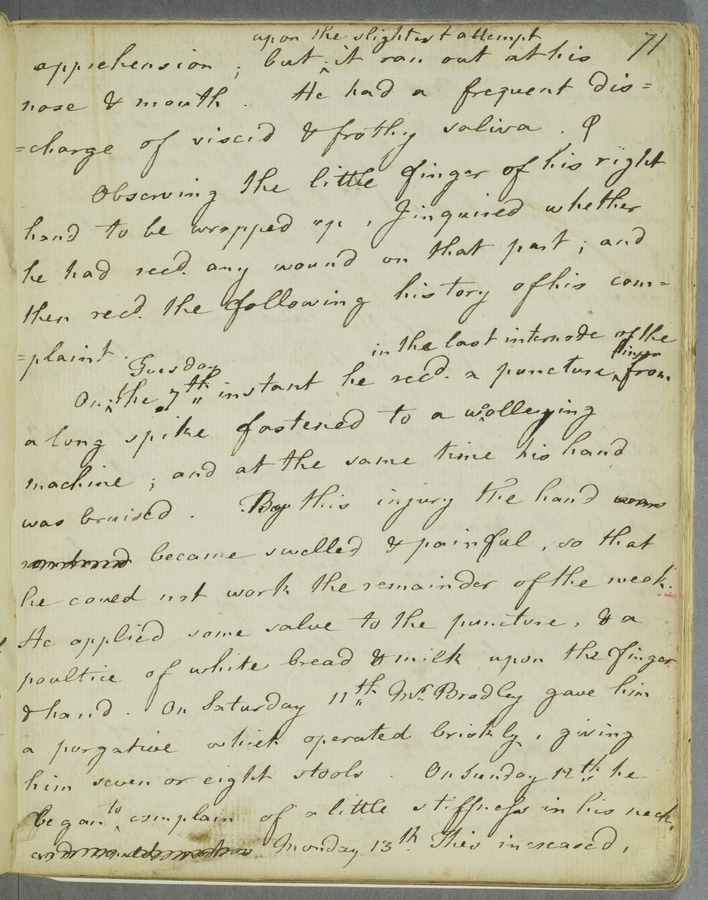 71
upon the slightest attempt
apprehension ; but ‸ it ran out at his
nose & mouth . He had a frequent dis=
=charge of viscid & frothy saliva .
Observing the little finger of his right
hand to be wrapped up , I inquired whether
he had recd. any wound on that part ; and
then recd. the following history of his com=
=plaint .
Tuesday in the last internode of the
finger
On ‸ the 7th instant he recd. a puncture ‸ from
a long spike fastened to a wolleying
machine ; and at the same time his hand
was bruised . By this injury the hand was
became swelled & painful , so that
he could not work the remainder of the week.
He applied some salve to the puncture , & a
poultice of white bread & milk upon the finger
& hand . On Saturday 11th Mr. Bradley gave him
a purgative which operated briskly , giving
him seven or eight stools . On Sunday 12th he
to
began ‸ complain of a little stiffness in his neck,
Monday 13th This increased ,